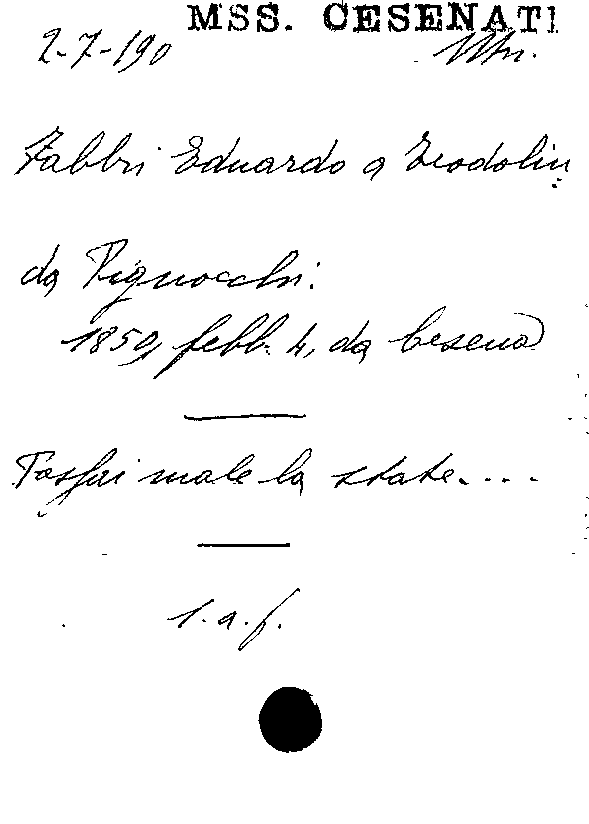 MSS. CESENATI
2-7-190
Fabbri Eduardo a Teodolin
da Pignocchi.
1850, febb. 4, da Cesena
male la state....
l.a.f.